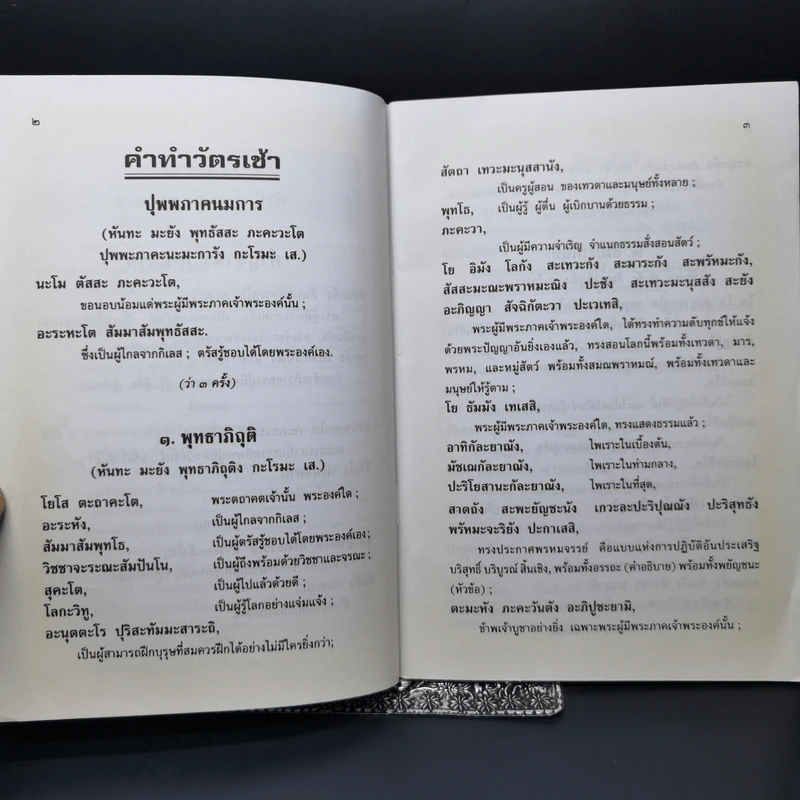 ๒
คำทำวัตรเช้า
ปุพพภาคนมการ
(หันทะ มะยัง พุทธัสสะ ภะคะวะโต
ปุพพะภาคะนะมะการัง กะโรมะ เส.)
นะโม ตัสสะ ภะคะวะโต,
ขอนอบน้อมแด่พระผู้มีพระภาคเจ้าพระองค์นั้น ;
อะระหะโต สัมมาสัมพุทธัสสะ.
ซึ่งเป็นผู้ไกลจากกิเลส ; ตรัสรู้ชอบได้โดยพระองค์เอง.
(ว่า ๓ ครั้ง)
๑. พุทธาภิถุติ
(หันทะ มะยัง พุทธาภิถุติง กะโรมะ เส.)
โยโส ตะถาคะโต, พระตถาคตเจ้านั้น พระองค์ใด ;
อะระหัง, เป็นผู้ไกลจากกิเลส ;
สัมมาสัมพุทโธ, เป็นผู้ตรัสรู้ชอบได้โดยพระองค์เอง;
วิชชาจะระณะสัมปันโน, เป็นผู้ถึงพร้อมด้วยวิชชาและจรณะ;
สุคะโต, เป็นผู้ไปแล้วด้วยดี ;
โลกะวิทู, เป็นผู้รู้โลกอย่างแจ่มแจ้ง ;
อะนุตตะโร ปุริสะทัมมะสาระถิ,
เป็นผู้สามารถฝึกบุรุษที่สมควรฝึกได้อย่างไม่มีใครยิ่งกว่า;
๓
สัตถา เทวะมะนุสสานัง,
เป็นครูผู้สอน ของเทวดาและมนุษย์ทั้งหลาย ;
พุทโธ, เป็นผู้รู้ ผู้ตื่น ผู้เบิกบานด้วยธรรม ;
ภะคะวา,
เป็นผู้มีความจำเริญ จำแนกธรรมสั่งสอนสัตว์ ;
โย อิมัง โลกัง สะเทวะกัง สะมาระกัง สะพรัหมะกัง,
สัสสะมะณะพราหมะณิง ปะชัง สะเทวะมะนุสสัง สะยัง
อะภิญญา สัจฉิกัตะวา ปะเวเทสิ,
พระผู้มีพระภาคเจ้าพระองค์ใด, ได้ทรงทำความดับทุกข์ให้แจ้ง
ด้วยพระปัญญาอันยิ่งเองแล้ว, ทรงสอนโลกนี้พร้อมทั้งเทวดา, มาร,
พรหม, และหมู่สัตว์ พร้อมทั้งสมณพราหมณ์, พร้อมทั้งเทวดาและ
มนุษย์ให้รู้ตาม ;
โย ธัมมัง เทเสสิ,
พระผู้มีพระภาคเจ้าพระองค์ใด, ทรงแสดงธรรมแล้ว ;
อาทิกัละยาณัง, ไพเราะในเบื้องต้น,
มัชเฌกัละยาณัง, ไพเราะในท่ามกลาง,
ปะริโยสานะกัละยาณัง, ไพเราะในที่สุด,
สาตถัง สะพะยัญชะนัง เกวะละปะริปุณณัง ปะริสุทธัง
พรัหมะจะริยัง ปะกาเสสิ,
ทรงประกาศพรหมจรรย์ คือแบบแห่งการปฏิบัติอันประเสริฐ
บริสุทธิ์ บริบูรณ์ สิ้นเชิง, พร้อมทั้งอรรถะ (คำอธิบาย) พร้อมทั้งพยัญชนะ
(หัวข้อ) ;
ตะมะหัง ภะคะวันตัง อะภิปูชะยามิ,
ข้าพเจ้าบูชาอย่างยิ่ง เฉพาะพระผู้มีพระภาคเจ้าพระองค์นั้น ;